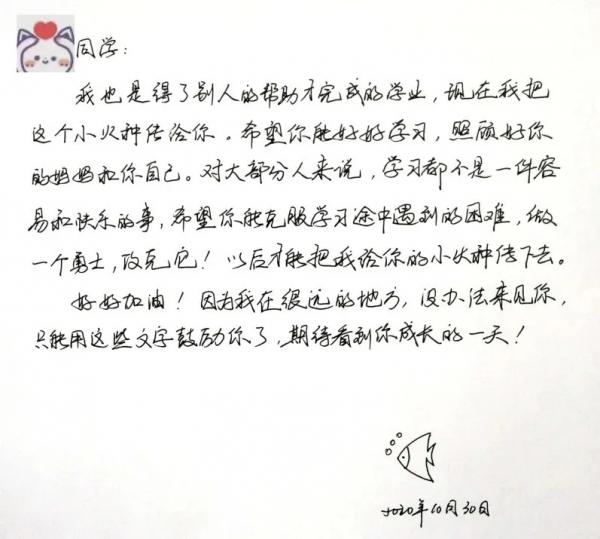 同学：
我也是得了别人的帮助才完成的学业，现在我把
这个小火种传给你。希望你能好好学习，照顾好你
的妈妈和你自己。对大部分人来说，学习都不是一件容
易和快乐的事，希望你能克服学习途中遇到的困难，做
一个勇士，攻克它！以后才能把我给你的小火种传下去。
好好加油！因为我在很远的地方，没办法来见你，
只能用这些文字鼓励你了，期待看到你成长的一天！
2020年10月30日